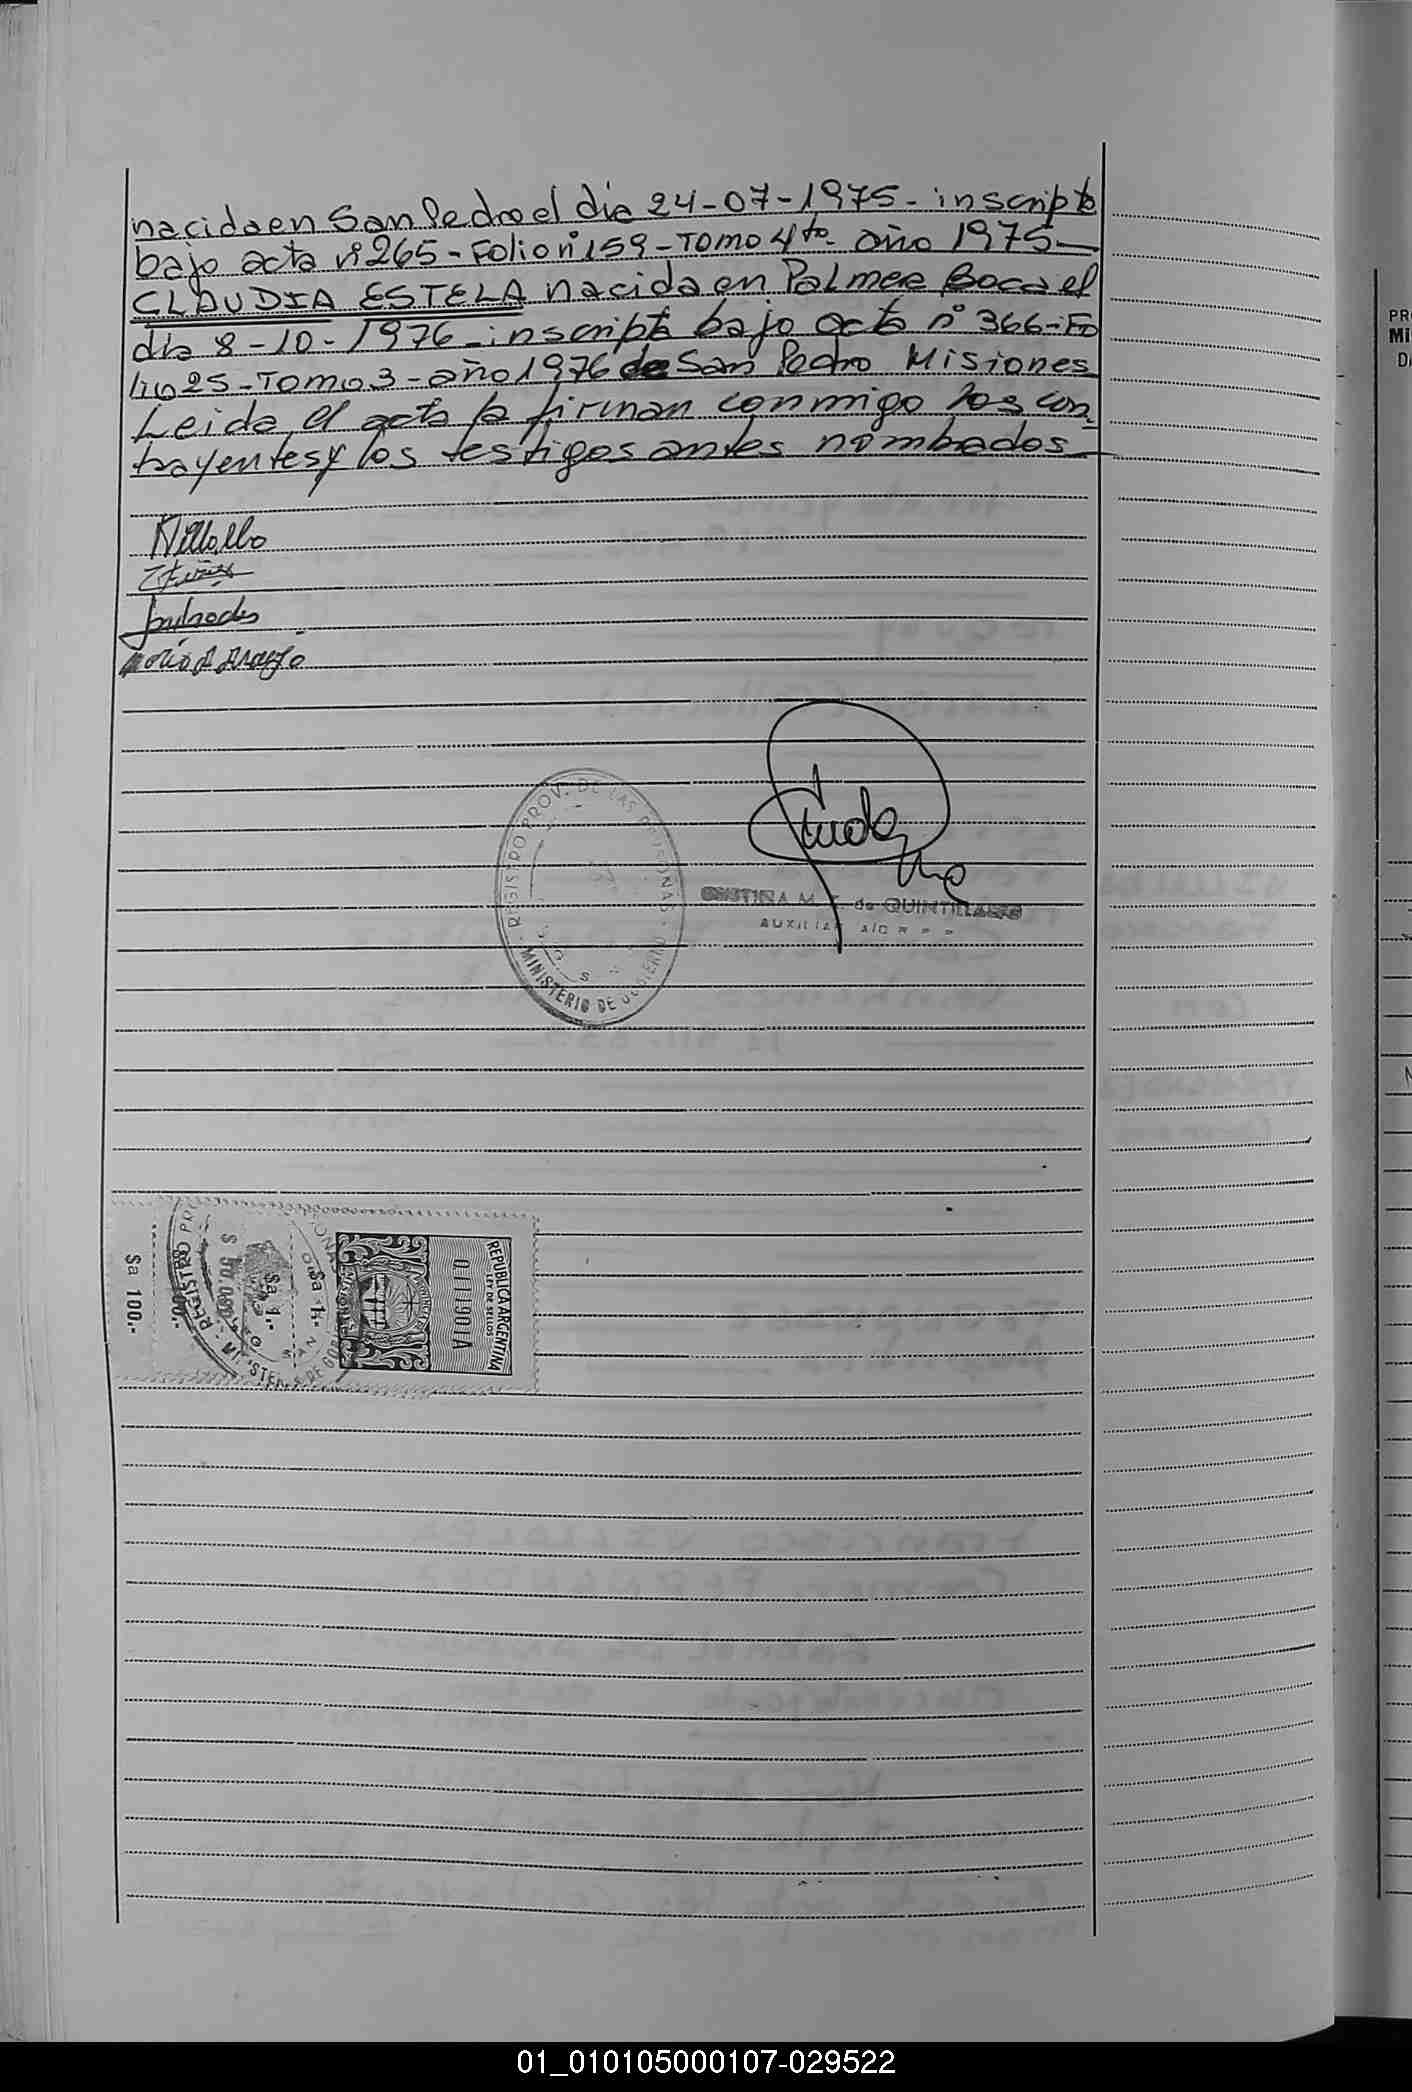 nacida en San Pedro el dia 24-07-1975- inscripta
bajo acta nº 265-Folio nº 159-Tomo 4to- año 1975-
CLAUDIA ESTELA nacida en Palmera Boca el
dia 8-10-1976-inscripta bajo acta nº 366-Fo
lio 25-Tomo 3-año 1976 de San Pedro Misiones
Leida el acta la firman conmigo los con
trayentes y los testigos antes nombrados
Villalba
Andrade
Maria A Araujo
REGISTRO PROV. DE LAS PERSONAS
MINISTERIO DE GOBIERNO
CRISTINA M. de QUINTILLANO
AUXILIAR A/C
REPUBLICA ARGENTINA
LEY DE SELLOS
0111901A
$a 1.-
$a 1.-
$a 100.-
REGISTRO PR
PR
Mi
D
01_010105000107-029522